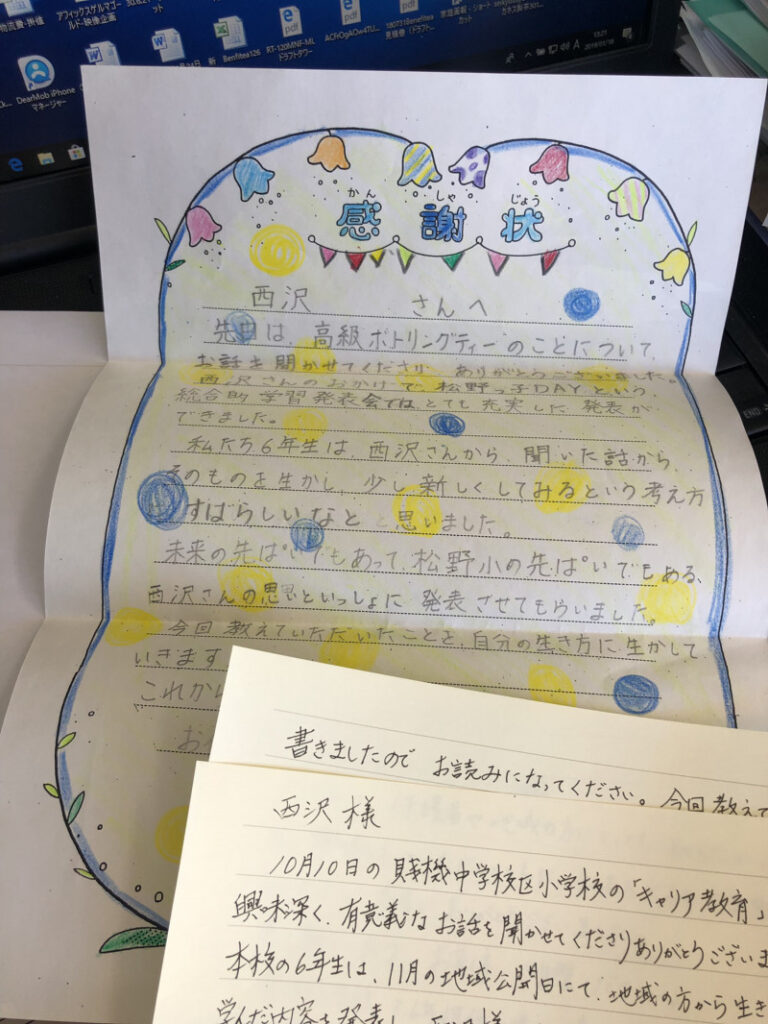 アフィックスゲルマゴールド-映像企画
DearMob iPhone マネージャー
Benfitea126
RT-120MNF-ML ドラフトタワー
pdf
pdf
pdf
13:21
2019/01/18
END
かん しゃ じょう
感謝状
西沢 さんへ
先日は、高級ボトリングティーのことについて、
お話を聞かせてくださり、ありがとうございました。
西沢さんのおかげで、松野っ子DAYという、
総合的学習発表会では、とても充実した発表が
できました。
私たち6年生は、西沢さんから、聞いた話から
そのものを生かし、少し新しくしてみるという考え方
すばらしいなと思いました。
未来の先ぱいでもあって、松野小の先ぱいでもある、
西沢さんの思いといっしょに発表させてもらいました。
今回教えていただいたことを、自分の生き方に生かして
いきます
これから
書きましたので お読みになってください。今回教えて
西沢様
10月10日の賎機中学校区小学校の「キャリア教育」
興味深く、有意義なお話を聞かせてくださりありがとうございま
本校の6年生は、11月の地域公開日にて、地域の方から生き
学んだ内容を発表し